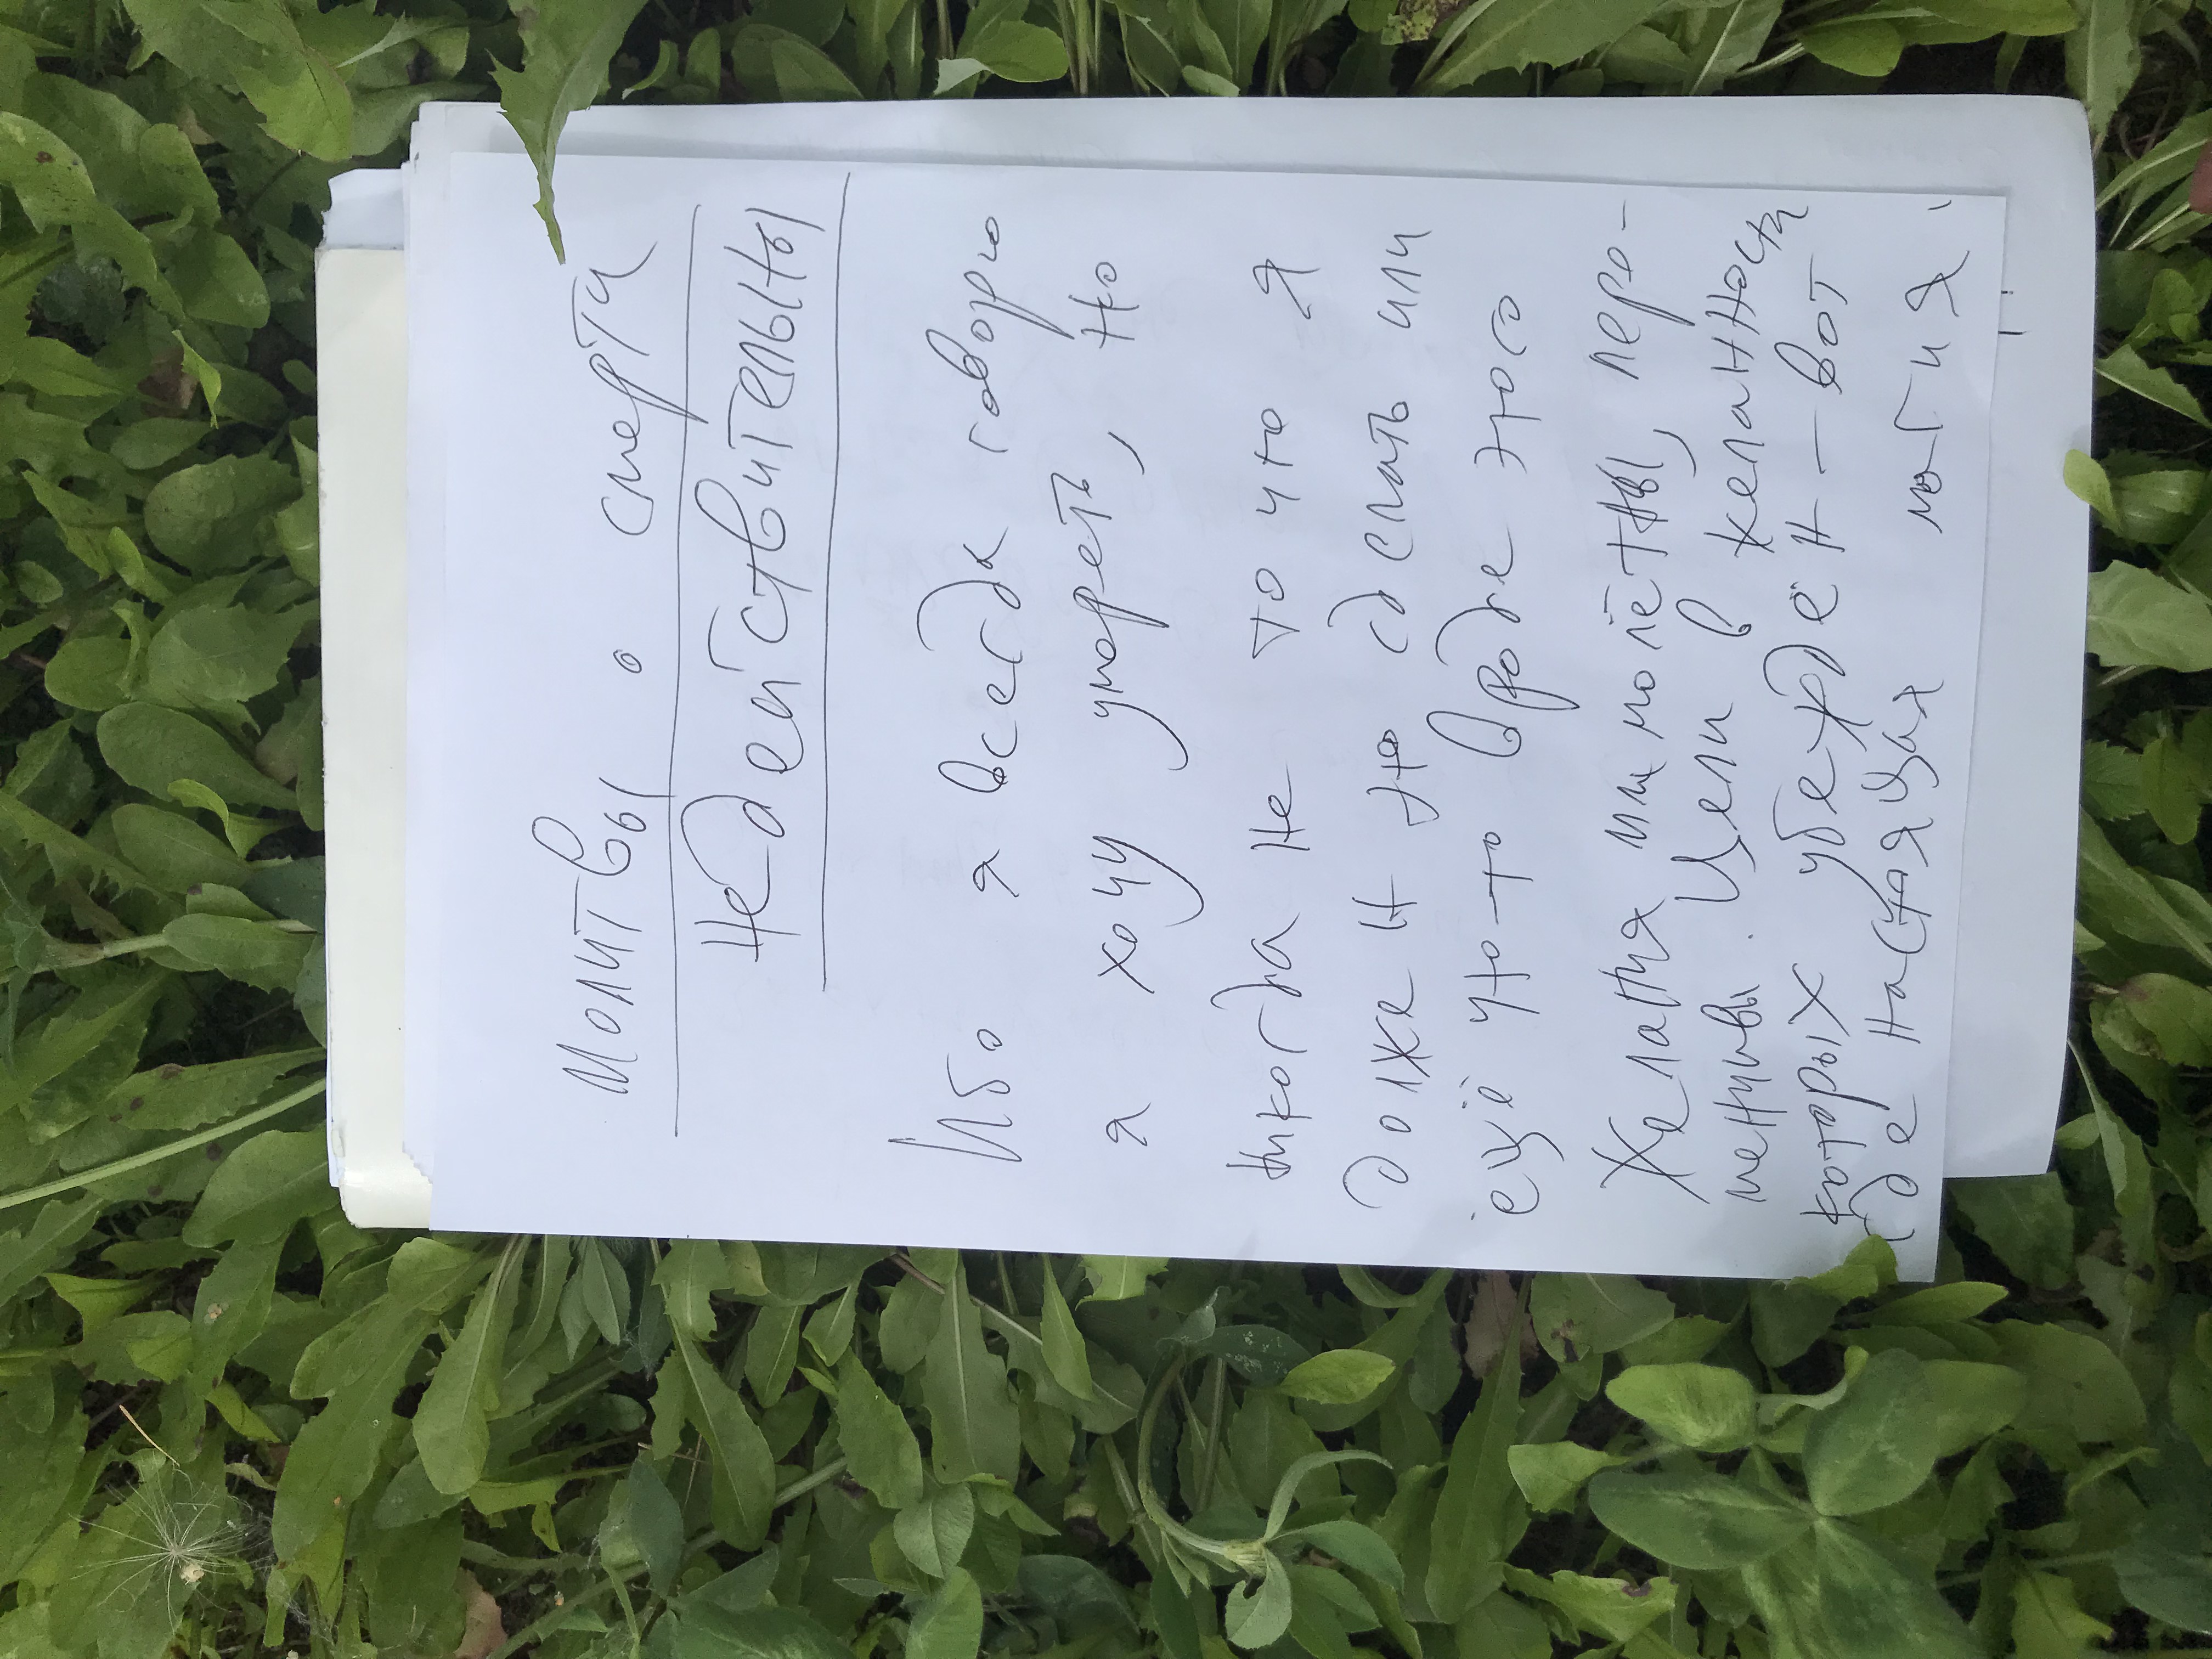 Молитвы о смерти
Недействительны
Ибо я всегда говорю
я хочу умереть, но
никогда не то что я
должен это сделать или
ещё что-то вроде этого
Желания мимолётны, пере-
менчивы. Цели в желанности
которых убеждён – вот
где настоящая магия.